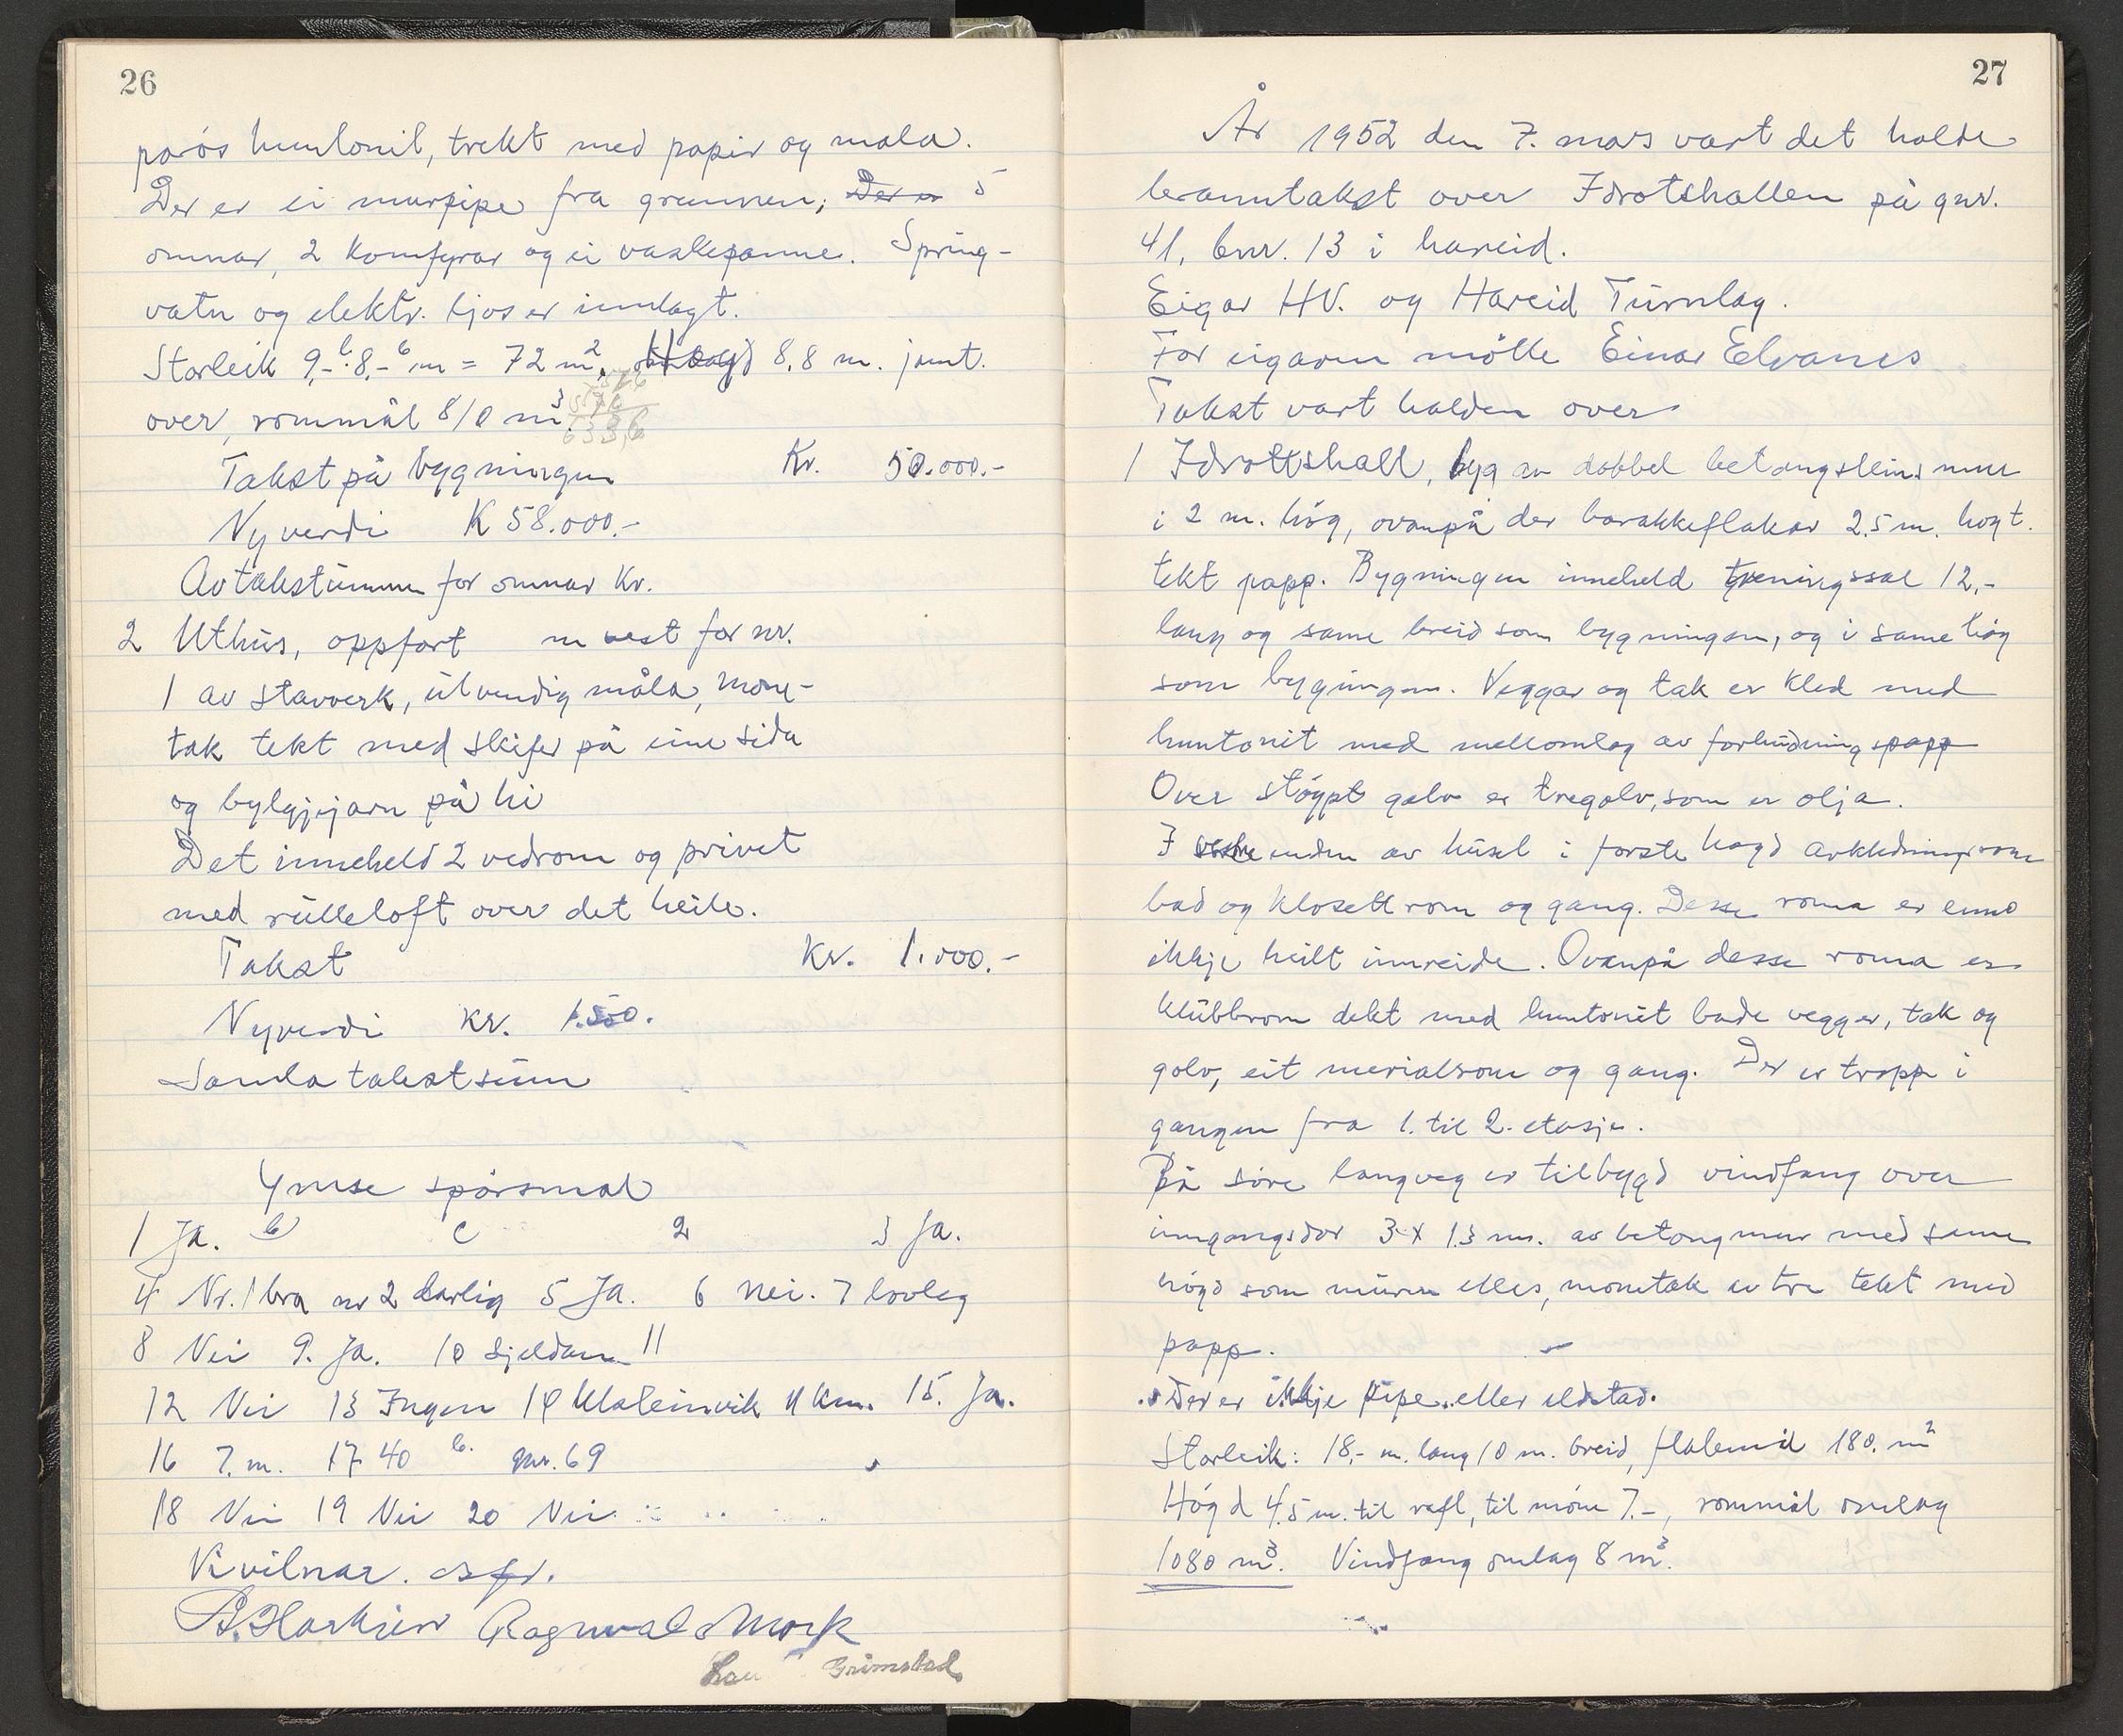 26
porøs huntonit, trekt med papir og mala.
Der er ei murpipe fra grunnen, Der er 5
omnar, 2 komfyrar og ei vaskepanne. Spring-
vatn og elektr. ljos er innlagt.
Storleik 9,- · 8,- m = 72 m², Høgd 8,8 m. jamt.
over, rommål 810 m³.
576
576
633,6
Takst på bygningen Kr. 50.000.-
Nyverdi K 58.000.-
Av takstsummen for omnar Kr.
2 Uthus, oppført m vest for nr.
1 av stavverk, utvendig måla, møne-
tak tekt med skifer på eine sida
og bylgjejarn på hi
Det inneheld 2 vedrom og privet
med rulleloft over det heile.
Takst Kr. 1.000.-
Nyverdi Kr. 1.500.
Samla takstsum
Ymse spørsmål
1 Ja. b c 2 3 Ja.
4 Nr. 1 bra nr 2 dårlig 5 Ja. 6 Nei. 7 lovleg
8 Nei 9. Ja. 10 Sjeldan 11
12 Nei 13 Ingen 14 Ulsteinvik 11 km. 15. Ja.
16 7. m. 17 40 b. gnr. 69
18 Nei 19 Nei 20 Nei
Kvilnar. osfr.
Ragnvald Mork
Grimstad
27
År 1952 den 7. mars vart det halde
branntakst over Idrotshallen på gnr.
41, bnr. 13 i hareid.
Eigar HV. og Hareid Turnlag.
For eigaren møtte Einar Elvanes
Takst vart halden over
1 Idrottshall, byg av dobbel betongsteins mur
i 2 m. høg, ovanpå der barakkeflakar 2.5 m. høgt.
tekt papp. Bygningen inneheld treningssal 12,-
lang og same breid som bygningen, og i same høg
som bygningen. Veggar og tak er kled med
huntonit med mellomlag av forhudningspapp
Over støypt golv er tregolv, som er olja.
I vestre enden av huset i første høgd avkledningsrom
bad og klosett rom og gang. Desse roma er enno
ikkje heilt innreide. Ovanpå desse roma er
klubbrom dekt med huntonit både vegger, tak og
golv, eit merialrom og gang. Der er trapp i
gangen fra 1. til 2. etasje.
På søre langveg er tilbygd vindfang over
inngangsdør 3 x 1.3 m. av betongmur med same
høgd som muren elles, mønetak av tre tekt med
papp.
Der er ikkje pipe eller eldstad.
Storleik: 18,- m. lang 10 m. breid, flatemål 180. m²
Høgd 4.5 m. til raft, til møne 7.-, rommål omlag
1080 m³. Vindfang omlag 8 m³.